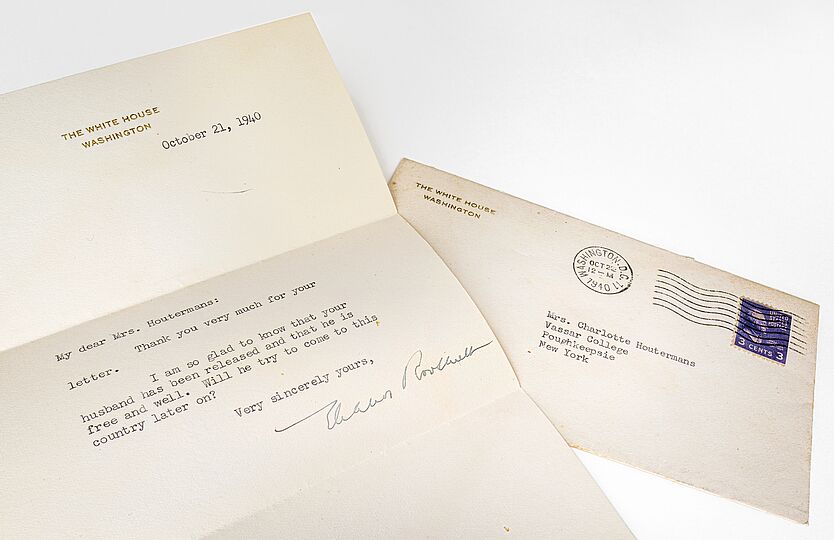 THE WHITE HOUSE
WASHINGTON
October 21, 1940
My dear Mrs. Houtermans:
Thank you very much for your
letter.
I am so glad to know that your
husband has been released and that he is
free and well. Will he try to come to this
country later on?
Very sincerely yours,
Eleanor Roosevelt
THE WHITE HOUSE
WASHINGTON
WASHINGTON, D.C.
OCT 22
12 - M
Mrs. Charlotte Houtermans
Vassar College
Poughkeepsie
New York
3 CENTS 3